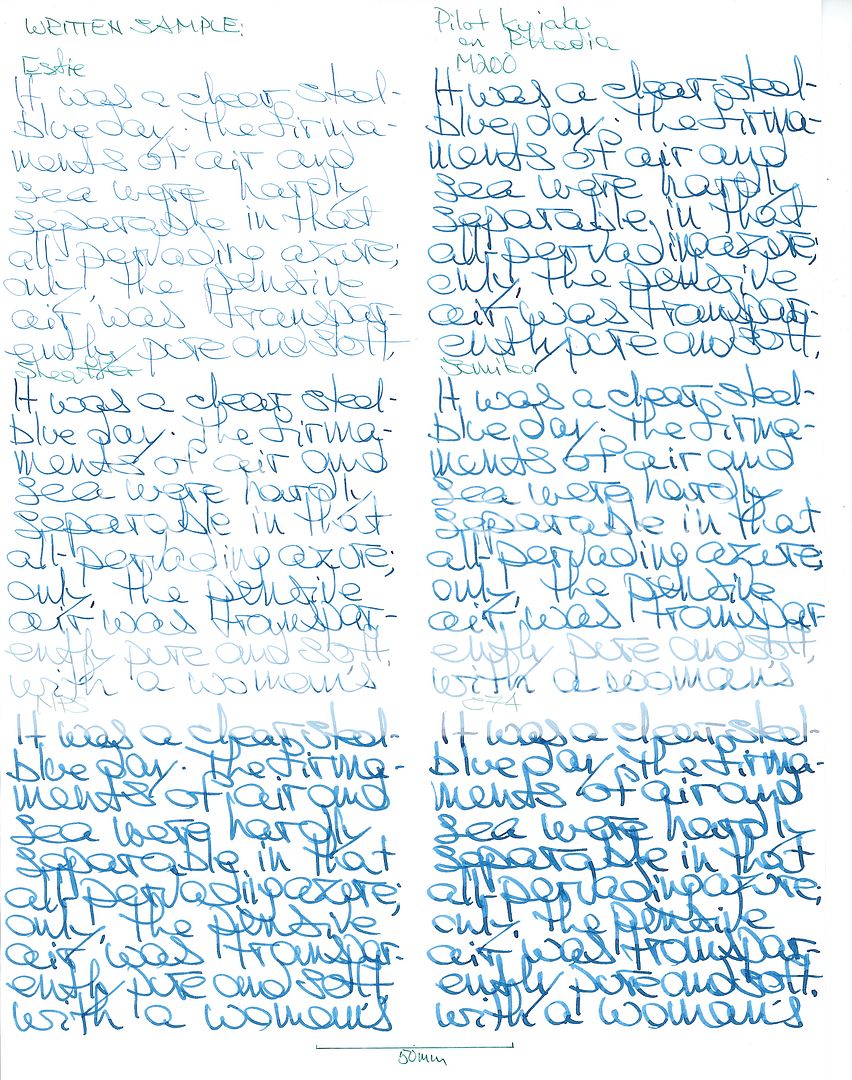 WRITTEN SAMPLE:
Estie
It was a clear, steel-
blue day. The firma-
ments of air and
sea were hardly
separable in that
all-pervading azure;
only the pensive
air was transpar-
ently pure and soft,
Sheaffer
It was a clear, steel-
blue day. The firma-
ments of air and
sea were hardly
separable in that
all-pervading azure;
only the pensive
air was transpar-
ently pure and soft,
with a woman's
It was a clear, steel-
blue day. The firma-
ments of air and
sea were hardly
separable in that
all-pervading azure;
only the pensive
air was transpar-
ently pure and soft
with a woman's
Pilot Kujaku
on Rhodia
M200
It was a clear, steel-
blue day. The firma-
ments of air and
sea were hardly
separable, in that
all-pervading azure;
only the pensive
air was transpar-
ently pure and soft,
It was a clear, steel-
blue day. The firma-
ments of air and
sea were hardly
separable in that
all-pervading azure;
only the pensive
air was transpar-
ently pure and soft,
with a woman's
It was a clear, steel-
blue day. The firma-
ments of air and
sea were hardly
separable in that
all-pervading azure;
only the pensive
air was transpar-
ently pure and soft.
with a woman's
50mm